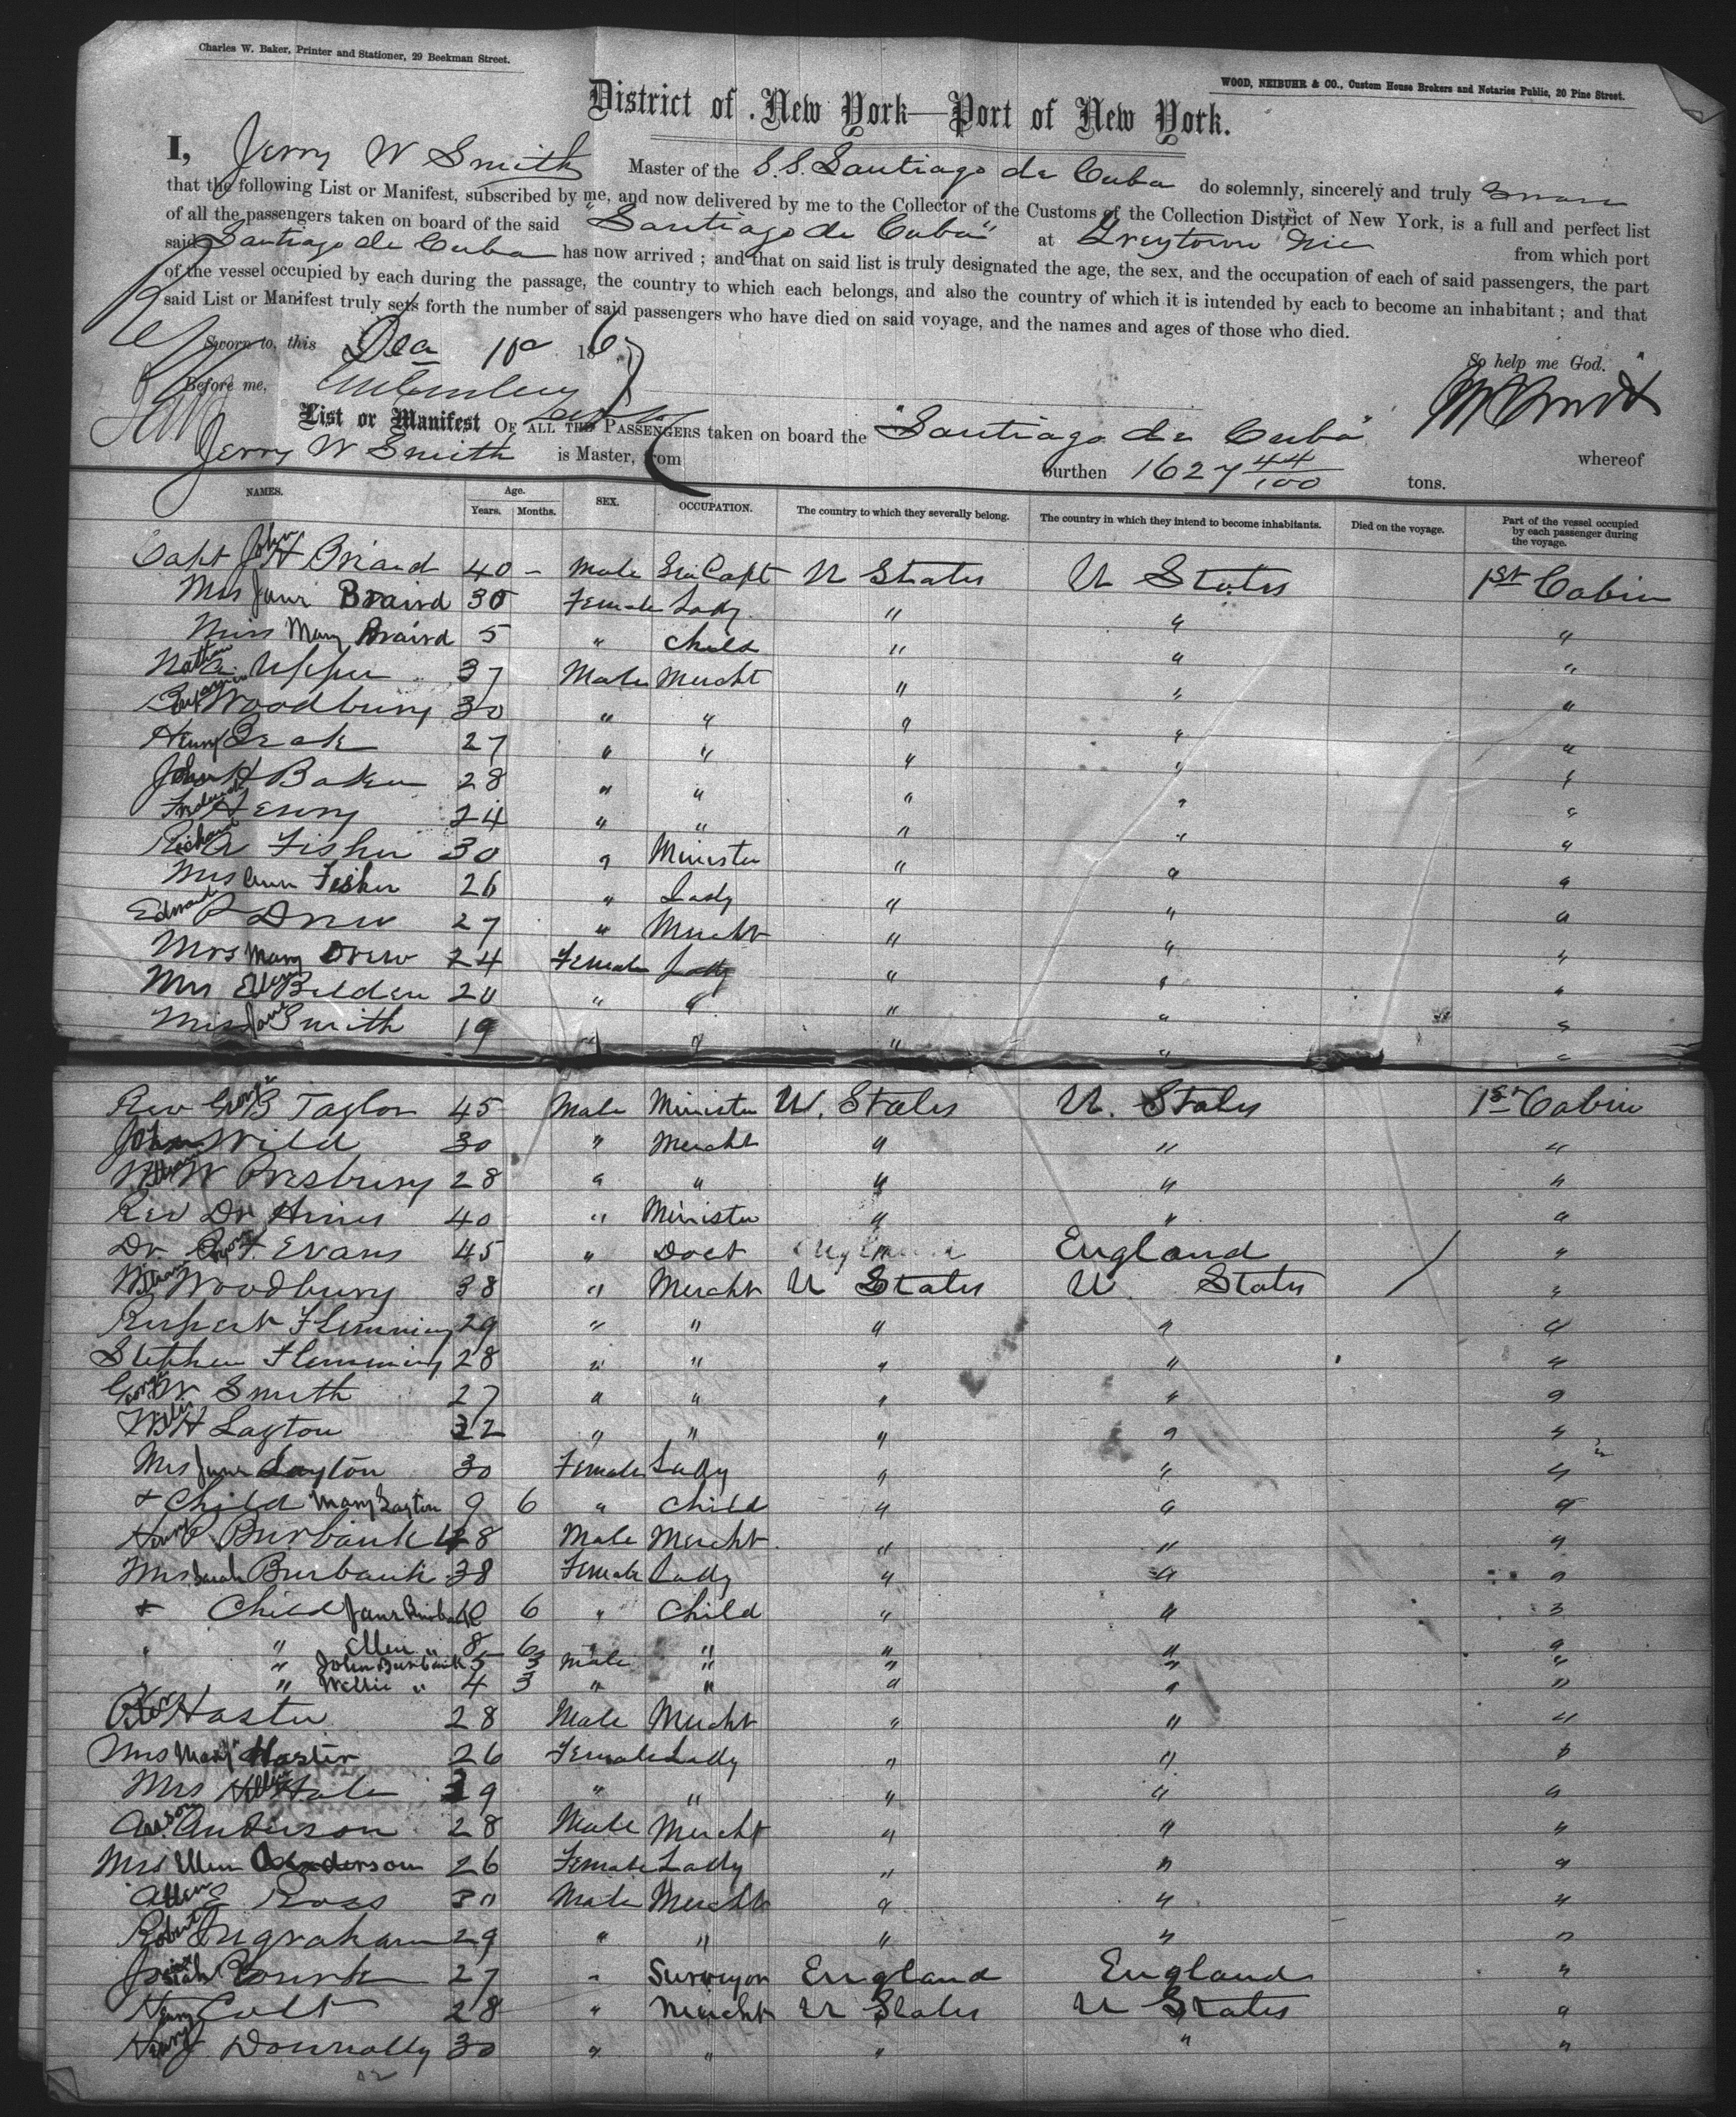 Charles W. Baker, Printer and Stationer, 29 Beekman Street.
WOOD, NEIBUHR & CO., Custom House Brokers and Notaries Public, 20 Pine Street.
District of New York—Port of New York.
I, Jerry W Smith Master of the S.S. Santiago de Cuba do solemnly, sincerely and truly swear
that the following List or Manifest, subscribed by me, and now delivered by me to the Collector of the Customs of the Collection District of New York, is a full and perfect list
of all the passengers taken on board of the said "Santiago de Cuba" at Greytown Nic from which port
said Santiago de Cuba has now arrived; and that on said list is truly designated the age, the sex, and the occupation of each of said passengers, the part
of the vessel occupied by each during the passage, the country to which each belongs, and also the country of which it is intended by each to become an inhabitant; and that
said List or Manifest truly sets forth the number of said passengers who have died on said voyage, and the names and ages of those who died.
Sworn to, this Dec 186
So help me God.
Before me,
List or Manifest OF ALL THE PASSENGERS taken on board the "Santiago de Cuba" whereof
Jerry W Smith is Master, from burthen 1627 44/100 tons.
NAMES. Age. Years. Months. SEX. OCCUPATION. The country to which they severally belong. The country in which they intend to become inhabitants. Died on the voyage. Part of the vessel occupied by each passenger during the voyage.
Capt John H 40 - Male Sea Capt U States U States 1st Cabin
Mrs Jane Braird 30 Female Lady " " "
Miss Mary Braird 5 " Child " " "
Nathan Upper 37 Male Mercht " " "
Benjamin Woodbury 30 " " " " "
Henry Peak 27 " " " " "
John H Baker 28 " " " " "
Frederick Henry 24 " " " " "
Richard A Fisher 30 " Minister " " "
Mrs Ann Fisher 26 " Lady " " "
Edward P Drew 27 " Mercht " " "
Mrs Mary Drew 24 Female Lady " " "
Mrs Ellen Belden 20 " " " " "
Miss Jane Smith 19 " " " " "
Rev George B Taylor 45 Male Minister U. States U. States 1st Cabin
John Wild 30 " Mercht " " "
William W Presbury 28 " " " " "
Rev Dr Hines 40 " Minister " " "
Dr F. Evans 45 " Doct England England "
William Woodbury 38 " Mercht U States U States "
Rupert Flemming 29 " " " " "
Stephen Flemming 28 " " " " "
George W Smith 27 " " " " "
Willis H Layton 32 " " " " "
Mrs Jane Layton 30 Female Lady " " "
& Child Mary Layton 9 6 " Child " " "
Henry P. Burbank 48 Male Mercht " " "
Mrs Sarah Burbank 38 Female Lady " " "
& Child Jane Burbank 10 6 " Child " " "
" " Ellen " 8 6 " " " " "
" John Burbank 5 3 Male " " " "
" Willie " 4 3 " " " " "
Peter Haster 28 Male Mercht " " "
Mrs Mary Haster 26 Female Lady " " "
Mrs Hale 39 " " " " "
Anson Anderson 28 Male Mercht " " "
Mrs Ellen Anderson 26 Female Lady " " "
Allen E Ross 30 Male Mercht " " "
Robert Ingraham 29 " " " " "
Josiah 27 " Surveyor England England "
Henry Colt 28 " Mercht U States U States "
Henry J Donnolly 30 " " " " "